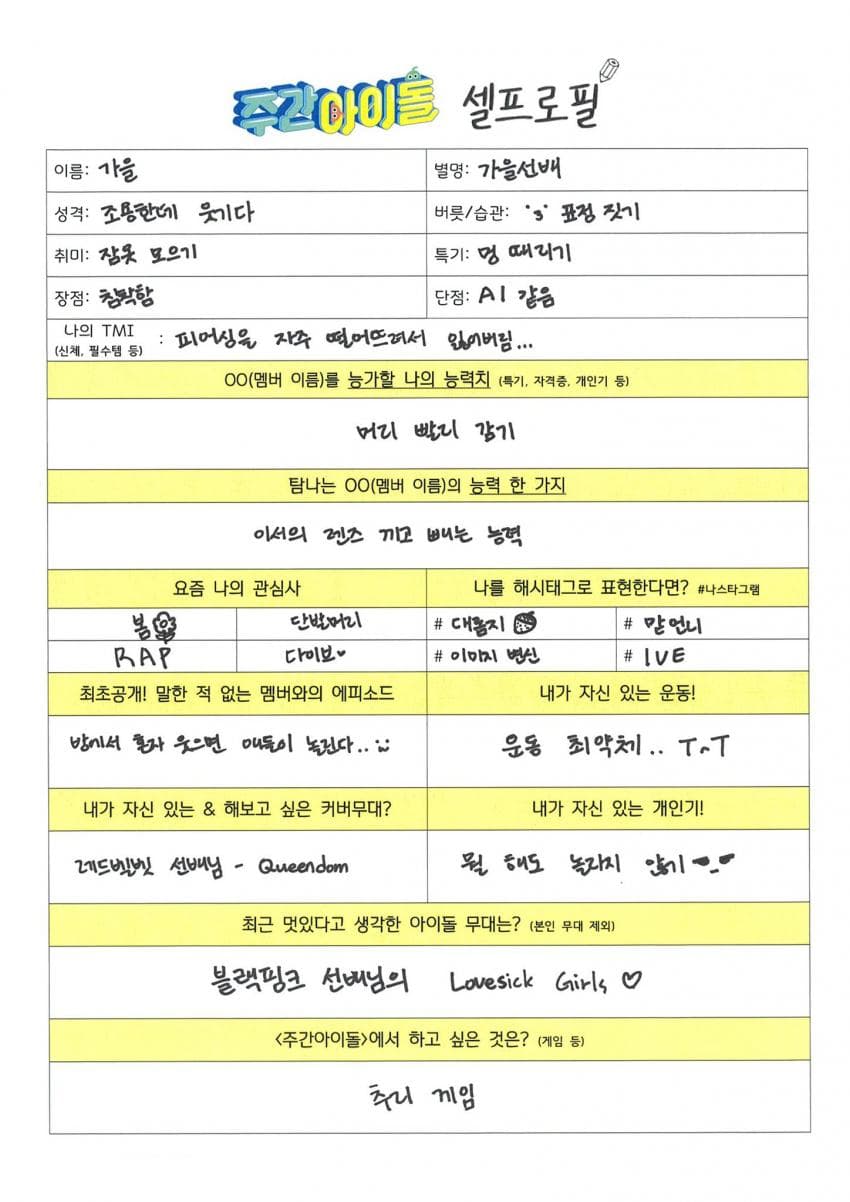 주간아이돌 셀프로필
이름: 가을
별명: 가을선배
성격: 조용한데 웃기다
버릇/습관: 'з' 표정 짓기
취미: 잠옷 모으기
특기: 멍 때리기
장점: 침착함
단점: AI 같음
나의 TMI
(신체, 필수템 등)
: 피어싱을 자주 떨어뜨려서 잃어버림...
OO(멤버 이름)를 능가할 나의 능력치 (특기, 자격증, 개인기 등)
머리 빨리 감기
탐나는 OO(멤버 이름)의 능력 한 가지
이서의 렌즈 끼고 빼는 능력
요즘 나의 관심사
나를 해시태그로 표현한다면? #나스타그램
봄
단발머리
# 대롬지
# 맏언니
RAP
다이보♥
# 이미지 변신
# IVE
최초공개! 말한 적 없는 멤버와의 에피소드
내가 자신 있는 운동!
방에서 혼자 웃으면 애들이 놀린다..
운동 최약체.. T^T
내가 자신 있는 & 해보고 싶은 커버무대?
내가 자신 있는 개인기!
레드벨벳 선배님 - Queendom
뭘 해도 놀라지 않기
최근 멋있다고 생각한 아이돌 무대는? (본인 무대 제외)
블랙핑크 선배님의 Lovesick Girls ♡
<주간아이돌>에서 하고 싶은 것은? (게임 등)
추리 게임